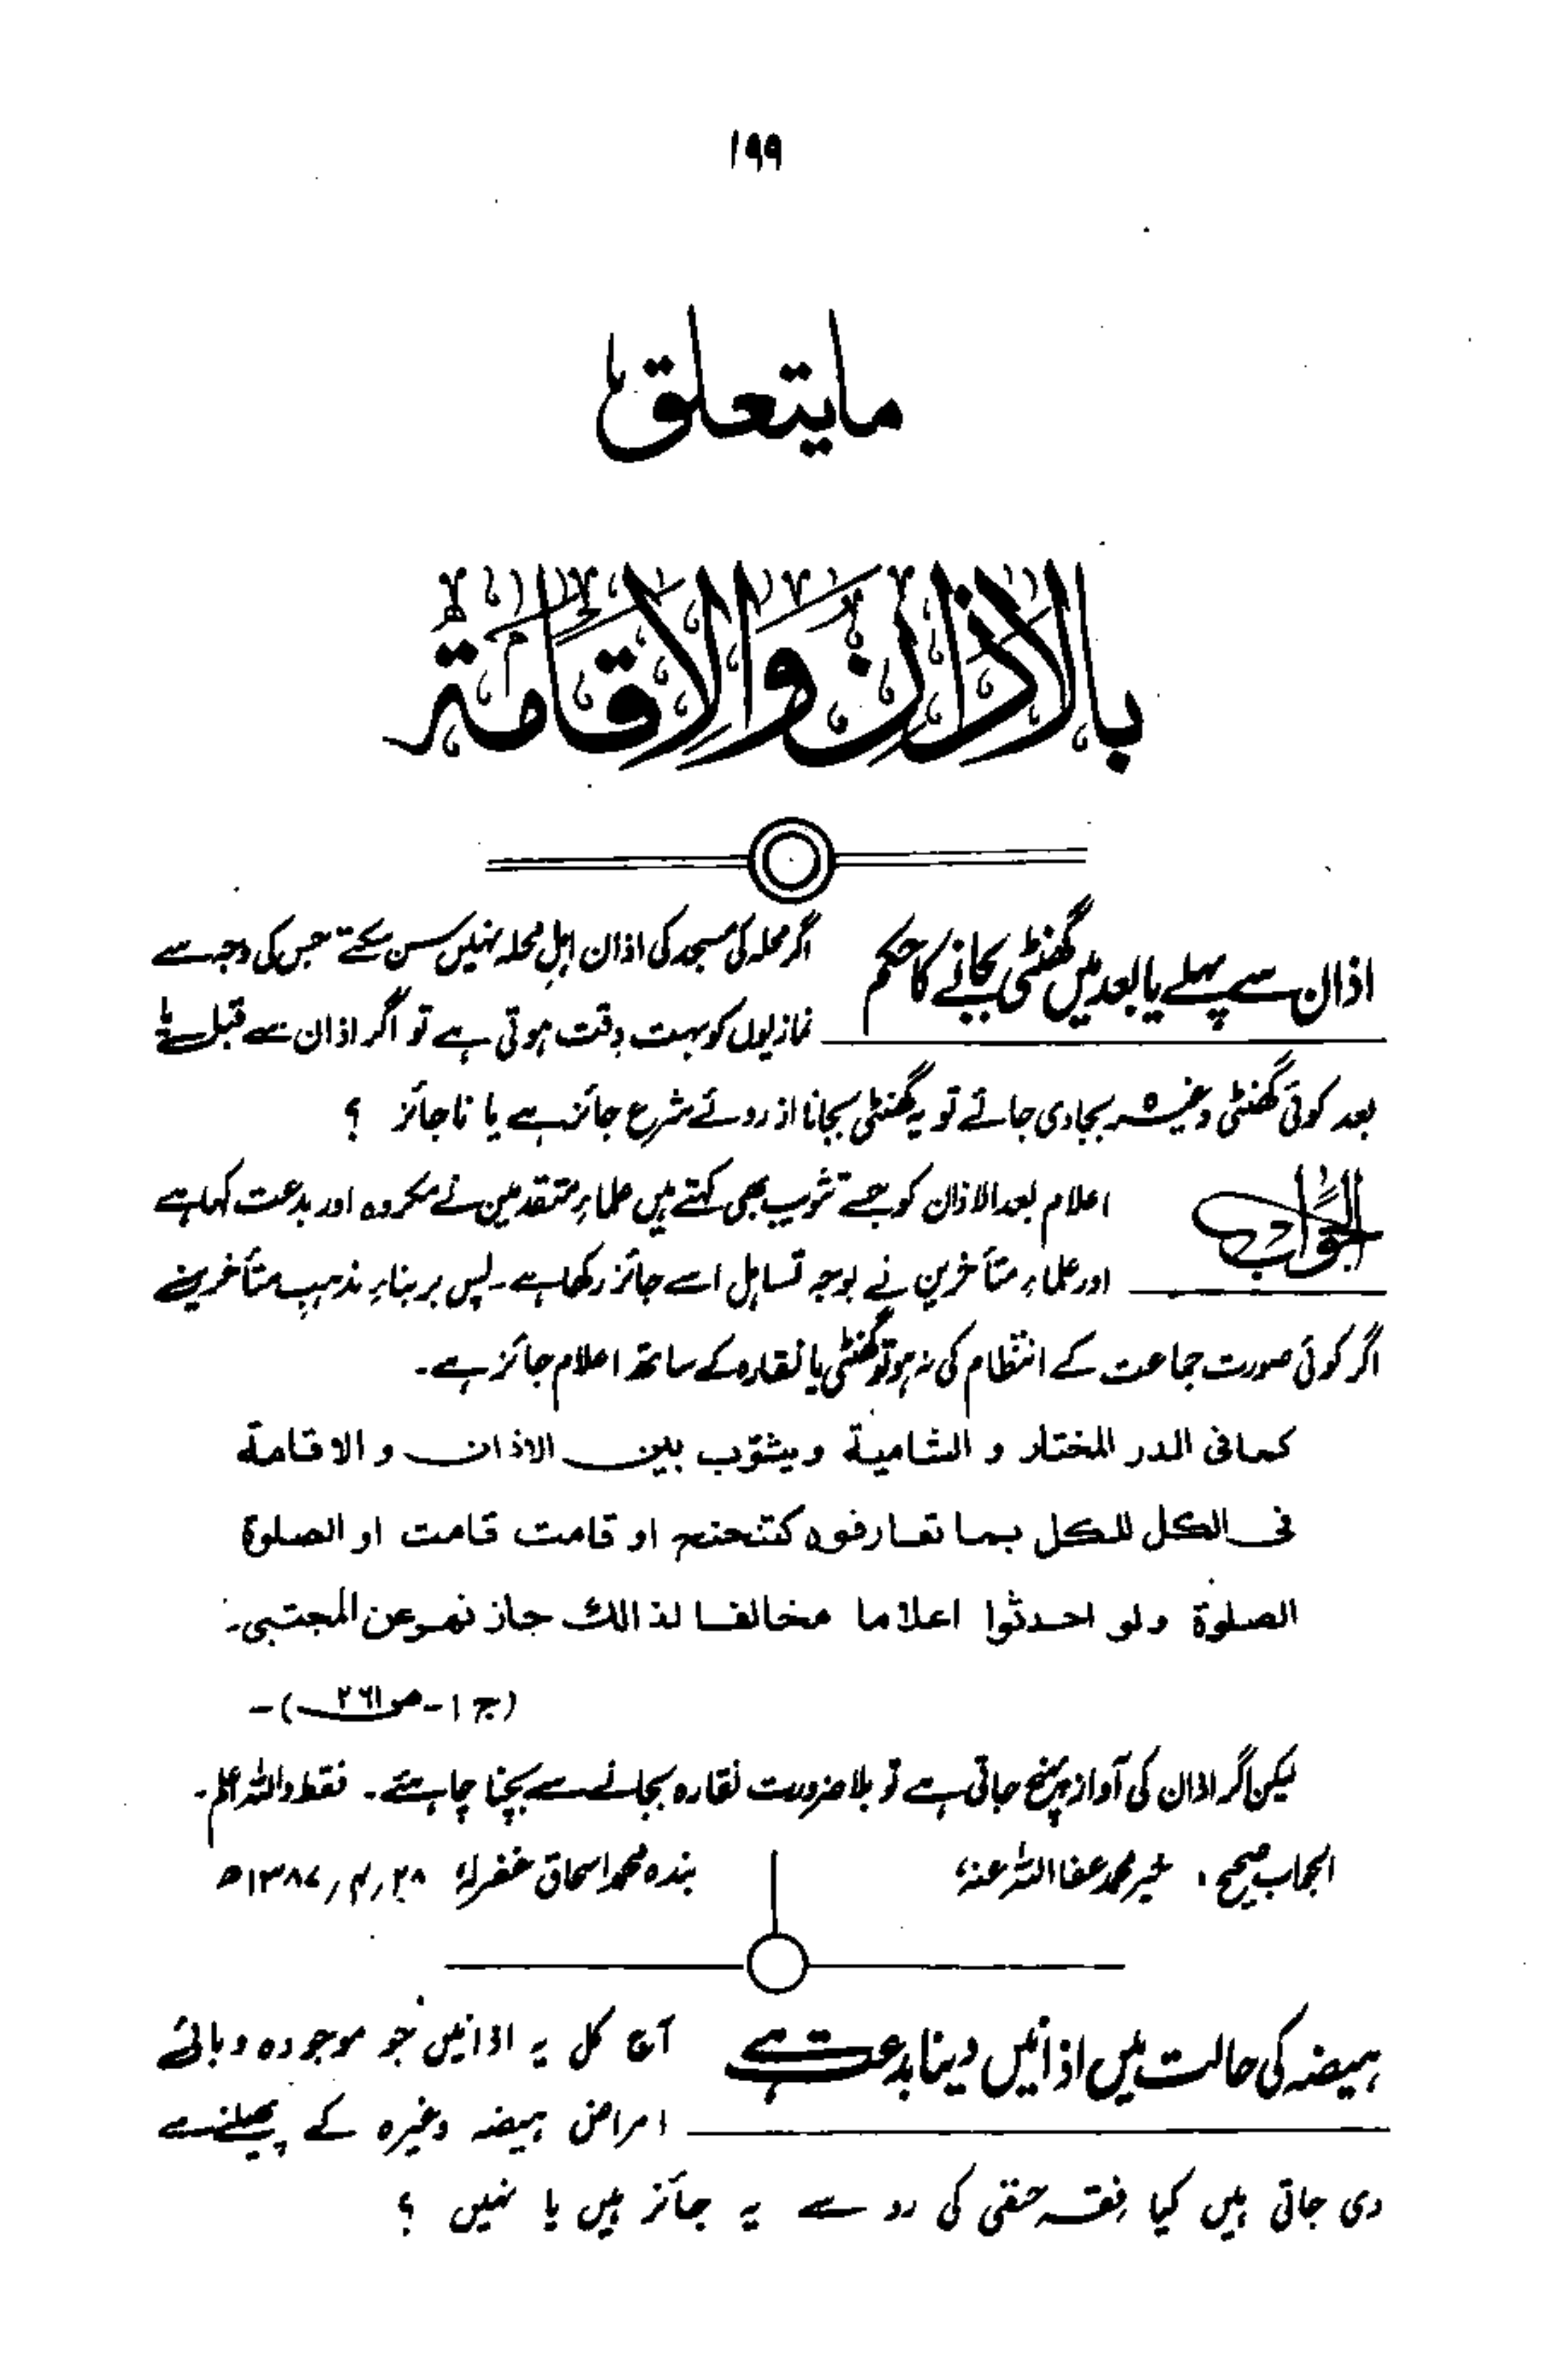 ۱۹۹
مایتعلق
بالاذان والاقامة
اذان سے پہلے یا بعد میں گھنٹی بجانے کا حکم
اگر محلہ کی مسجد کی اذان اہلِ محلہ نہیں سن سکتے جس کی وجہ سے
نمازیوں کو بہت دِقت ہوتی ہے تو اگر اذان سے قبل یا
بعد کوئی گھنٹی وغیرہ بجا دی جائے تو یہ گھنٹی بجانا از روئے شرع جائز ہے یا ناجائز ؟
الجواب
اعلام بعد الاذان کو جسے تثویب بھی کہتے ہیں علماءِ متقدمین نے مکروہ اور بدعت کہا ہے
اور علماءِ متأخرین نے بوجہ تساہل اسے جائز رکھا ہے ۔ پس بر بناءِ مذہب متأخرین
اگر کوئی صورت جماعت کے انتظام کی نہ ہو تو گھنٹی یا نقارہ کے ساتھ اعلام جائز ہے ۔
کما فی الدر المختار و الشامیة ویثوّب بین الاذان و الاقامة
فی الکل للکل بما تعارفوه کتنحنح او قامت قامت او الصلوة
الصلوة ولو احدثوا اعلاما مخالفا لذالك جاز نهر عن المجتبی ۔
(ج ۱ ۔ ص ۲۶۱) ۔
لیکن اگر اذان کی آواز پہنچ جاتی ہے تو بلا ضرورت نقارہ بجانے سے بچنا چاہئے ۔ فقط واللہ اعلم ۔
الجواب صحیح ، خیر محمد عفا اللہ عنہ
بندہ محمد اسحاق غفر لہٗ ۲۸ ؍ ۴ ؍ ۱۳۸۷ ھ
ہیضہ کی حالت میں اذانیں دینا بدعت ہے
آج کل یہ اذانیں جو موجودہ وبائی
امراض ہیضہ وغیرہ کے پھیلنے سے
دی جاتی ہیں کیا فقہ حنفی کی رو سے یہ جائز ہیں یا نہیں ؟